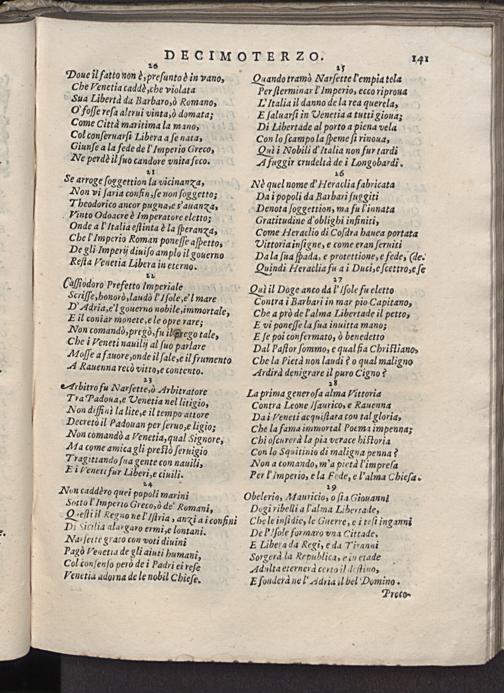 DECIMOTERZO. 141
20
Doue il fatto non è, presunto è in vano,
Che Venetia caddè, che violata
Sua Libertà da Barbaro, ò Romano,
O' fosse resa altrui vinta, ò domata;
Come Città maritima la mano,
Col conseruarsi Libera a se nata,
Giunse a la fede de l'Imperio Greco,
Ne perdè il suo candore vnita seco.
21
Se arroge soggettion la vicinanza,
Non vi saria confin, se non soggetto;
Theodorico ancor pugna, e s'auanza,
Vinto Odoacre è Imperatore eletto;
Onde a l'Italia estinta è la speranza,
Che l'Imperio Roman ponesse aspetto,
De gli Imperij diuiso amplo il gouerno
Resta Venetia Libera in eterno.
22
Cassiodoro Prefetto Imperiale
Scrisse, honorò, laudò l'Isole, e'l mare
D'Adria, e'l gouerno nobile, immortale,
E il coniar monete, e le opre rare;
Non comandò, pregò, fu il prego tale,
Che i Veneti nauilij al suo parlare
Mosse a fauore, onde il sale, e il frumento
A Rauenna recò vitto, e contento.
23
Arbitro fu Narsette, ò Arbitratore
Tra Padoua, e Venetia nel litigio,
Non diffinì la lite, e il tempo attore
Decretò il Padouan per seruo, e ligio;
Non comandò a Venetia, qual Signore,
Ma come amica gli prestò seruigio
Tragittando sua gente con nauili,
E i Veneti fur Liberi, e ciuili.
24
Non caddèro quei popoli marini
Sotto l'Imperio Greco, ò de' Romani,
Questi il Regno ne l'Istria, anzi a i confini
Di Sicilia alargaro ermi, e lontani.
Narsette grato con voti diuini
Pagò Venetia de gli aiuti humani,
Col consenso però de i Padri ei rese
Venetia adorna de le nobil Chiese.
25
Quando tramò Narsette l'empia tela
Per sterminar l'Imperio, ecco riproua
L'Italia il danno de la rea querela,
E saluarsi in Venetia a tutti gioua;
Di Libertade al porto a piena vela
Con lo scampo la speme si rinoua,
Quì i Nobili d'Italia non fur tardi
A fuggir crudeltà de i Longobardi.
26
Nè quel nome d'Heraclia fabricata
Da i popoli da Barbari fuggiti
Denota soggettion, ma fu l'innata
Gratitudine d'oblighi infiniti,
Come Heraclio di Cosdra hauea portata
Vittoria insigne, e come eran seruiti
Da la sua spada, e protettione, e fede, (de.
Quindi Heraclia fu a i Duci, e scettro, e se
27
Quì il Doge anco da l'Isole fu eletto
Contra i Barbari in mar pio Capitano,
Che a prò de l'alma Libertade il petto,
E vi ponesse la sua inuitta mano;
E se poi confermato, ò benedetto
Dal Pastor sommo, e qual sia Christiano,
Che la Pietà non laudi? o qual maligno
Ardirà denigrare il puro Cigno?
28
La prima generosa alma Vittoria
Contra Leone Isaurico, e Rauenna
Da i Veneti acquistata con tal gloria,
Che la fama immortal Poemi impenna;
Chi oscurerà la pia verace historia
Con lo Squitinio di maligna penna?
Non a comando, m'a pietà l'impresa
Per l'Imperio, e la Fede, e l'alma Chiesa.
29
Obelerio, Mauricio, o sia Giouanni
Dogi ribelli a l'alma Libertade,
Che le insidie, le Guerre, e i tesi inganni
De l'Isole formaro vna Cittade.
E Libera da Regi, e da Tiranni
Sorgerà la Republica, e in etade
Adulta eternerà certo il destino,
E fonderà ne l'Adria il bel Domino.
Proto-